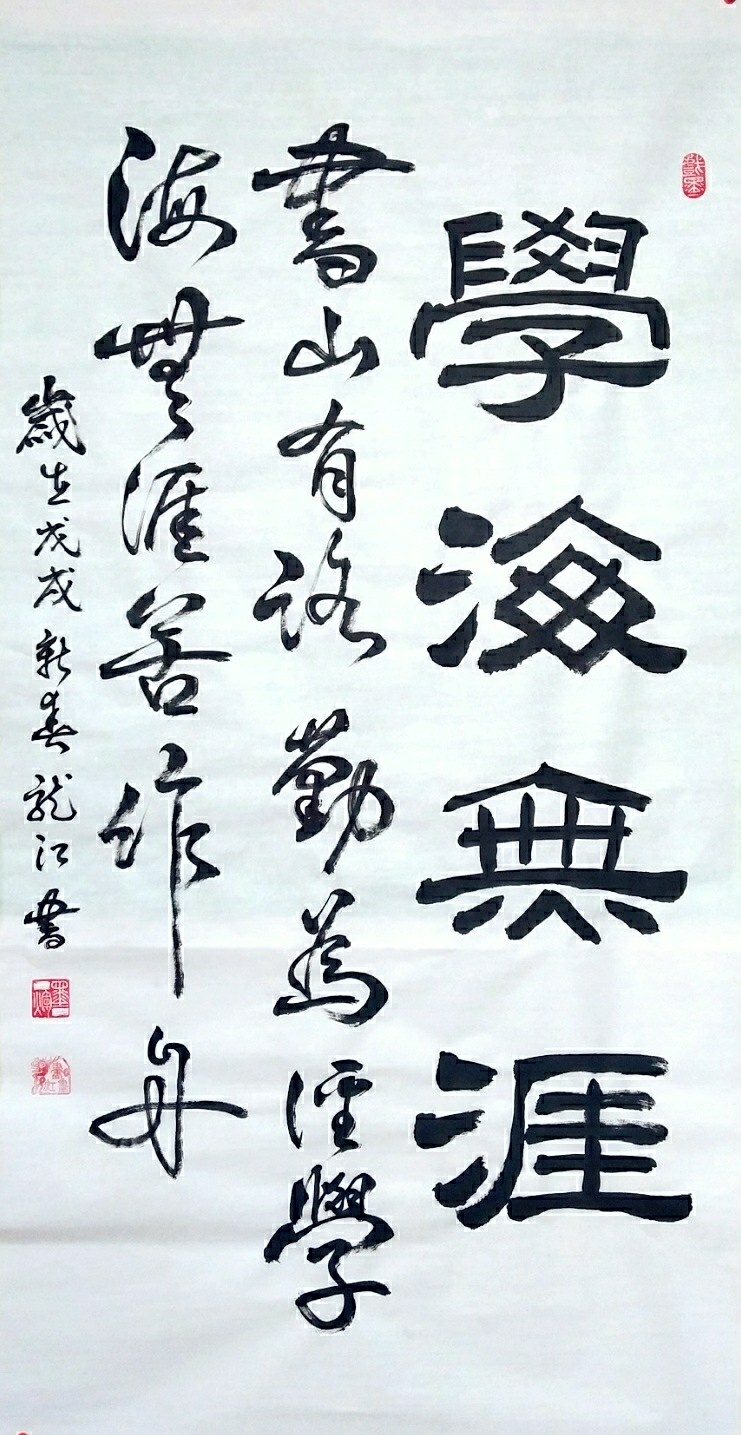 學海無涯
書山有路勤為徑學
海無涯苦作舟
歲在戊戌新春龍江書